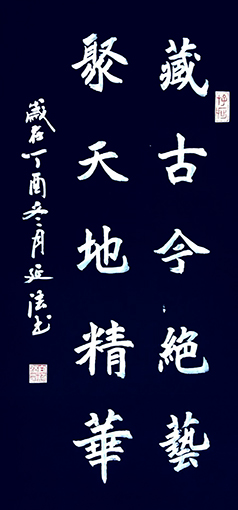 藏古今絕藝
聚天地精華
歲在丁酉冬月延法书